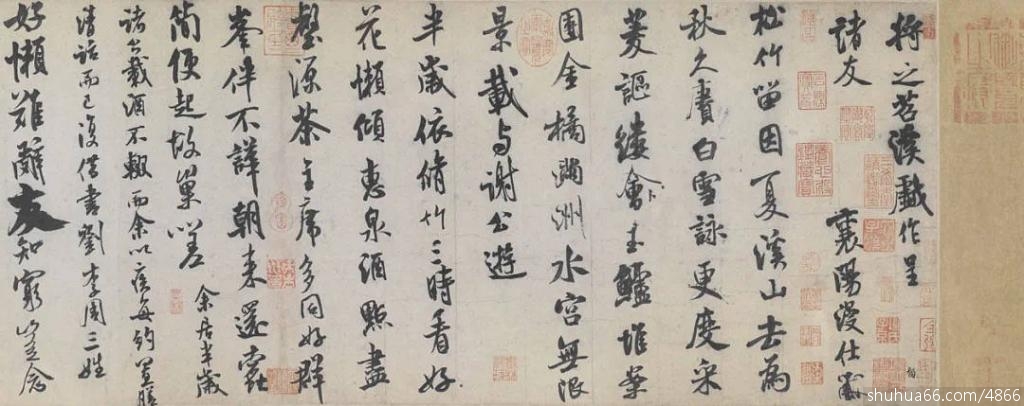 将之苕溪戲作呈
諸友
襄陽漫仕黻
松竹留因夏溪山去為
秋久賡白雪詠更度采
菱謳縷會玉鱸堆案
團金橘滿洲水宮無限
景載与謝公遊
半歲依脩竹三時看好
花懶傾惠泉酒點盡
壑源茶主席多同好群
峯伴不譁朝來還蠹
簡便起故巢嗟
余居半歲
諸公載酒不輟而余以疾每約置膳
清話而已復借書劉李周三姓
好懶難辭友知窮豈念
shuhua66.com/4866